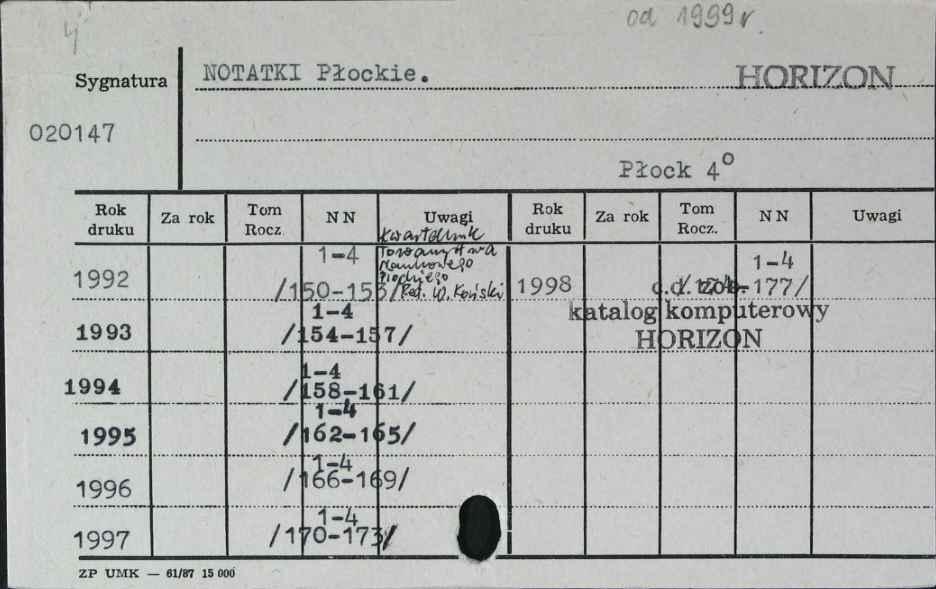 4
od 1999r.
Sygnatura NOTATKI Płockie. HORIZON
020147
Płock 4°
Rok druku Za rok Tom Rocz. N N Uwagi Rok druku Za rok Tom Rocz. N N Uwagi
Kwartalnik
Towarzystwa
Naukowego
Płockiego
Red. W. Koński
1992 1-4 /150-153/
1998 1-4 /174-177/
c.d. zob.
katalog komputerowy
HORIZON
1993 1-4 /154-157/
1994 1-4 /158-161/
1995 1-4 /162-165/
1996 1-4 /166-169/
1997 1-4 /170-173/
ZP UMK — 61/87 15 000